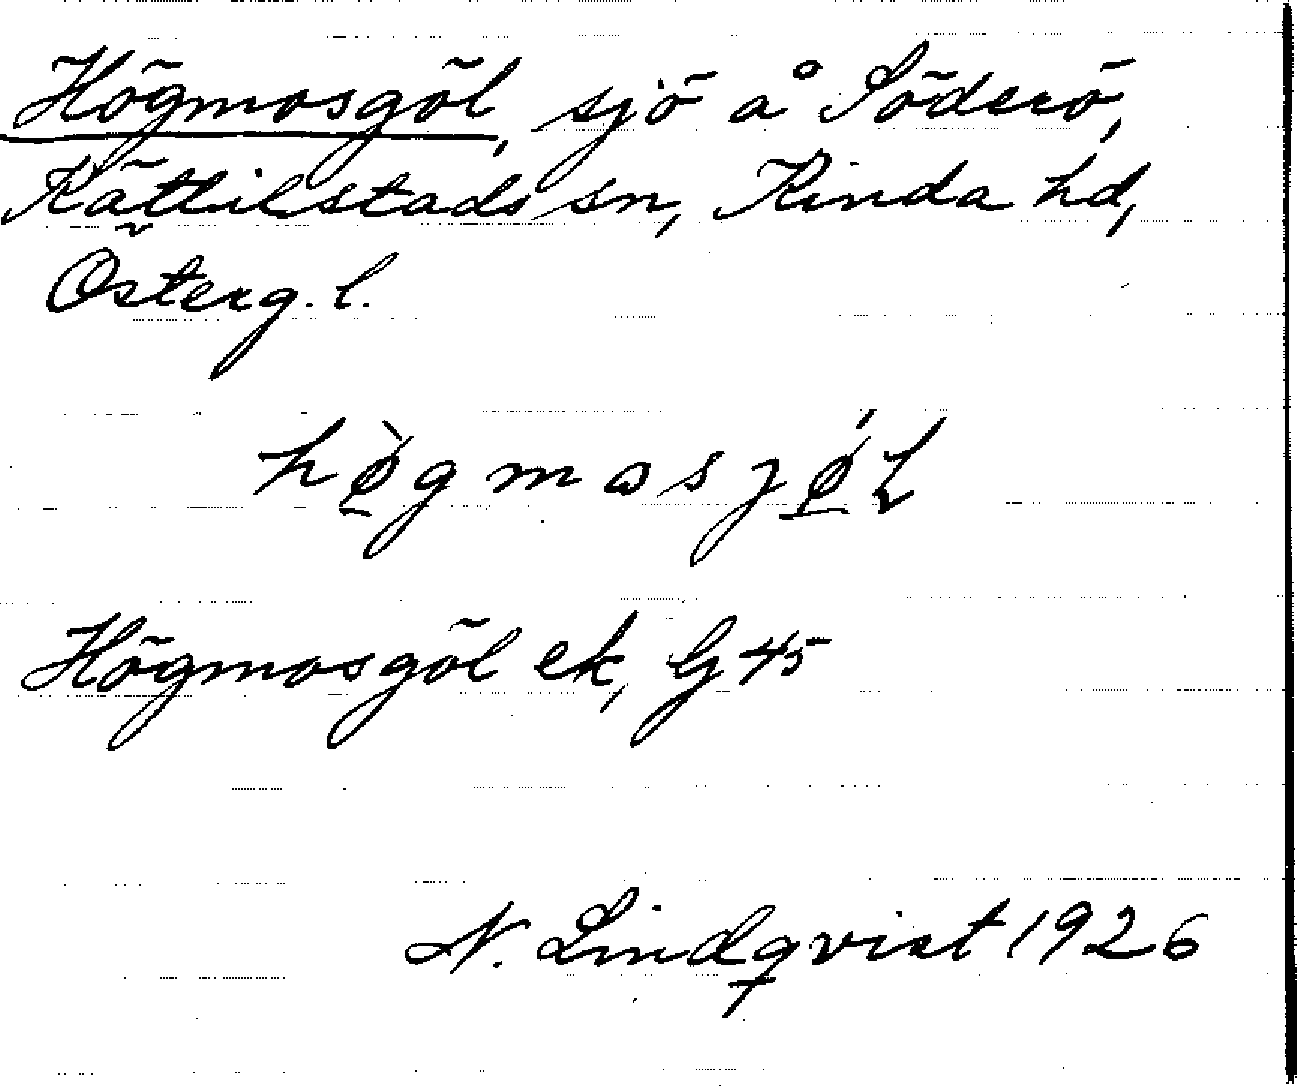 Högmosgöl, sjö å Söderö,
Kättilstads sn, Kinda hd,
Österg. l.
hø̀gmosjǿl
Högmosgöl ek, G 45
N. Lindqvist 1926